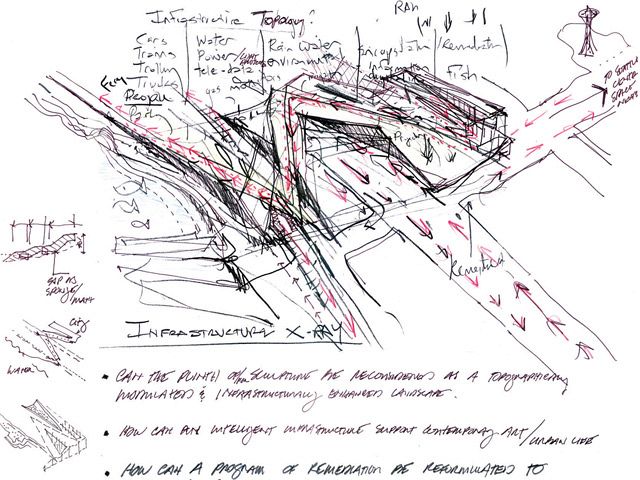 Infrastructure Topology?
RAIN
Cars
Trams
Trolley
Trucks
People
Water
Power/
tele-data
gas
Rain Water
environmental
Remediation
Information
Fish
TO SEATTLE
CENTER
SPACE
NEEDLE
SLIP AS
SPONGE/
MATT
CITY
WATER
INFRASTRUCTURE X-RAY
• CAN THE PLINTH OF SCULPTURE BE RECONSIDERED AS A TOPOGRAPHICALLY
MODULATED & INFRASTRUCTURALLY ENHANCED LANDSCAPE.
• HOW CAN AN INTELLIGENT INFRASTRUCTURE SUPPORT CONTEMPORARY ART/URBAN LIFE
• HOW CAN A PROGRAM OF REMEDIATION BE REFORMULATED TO